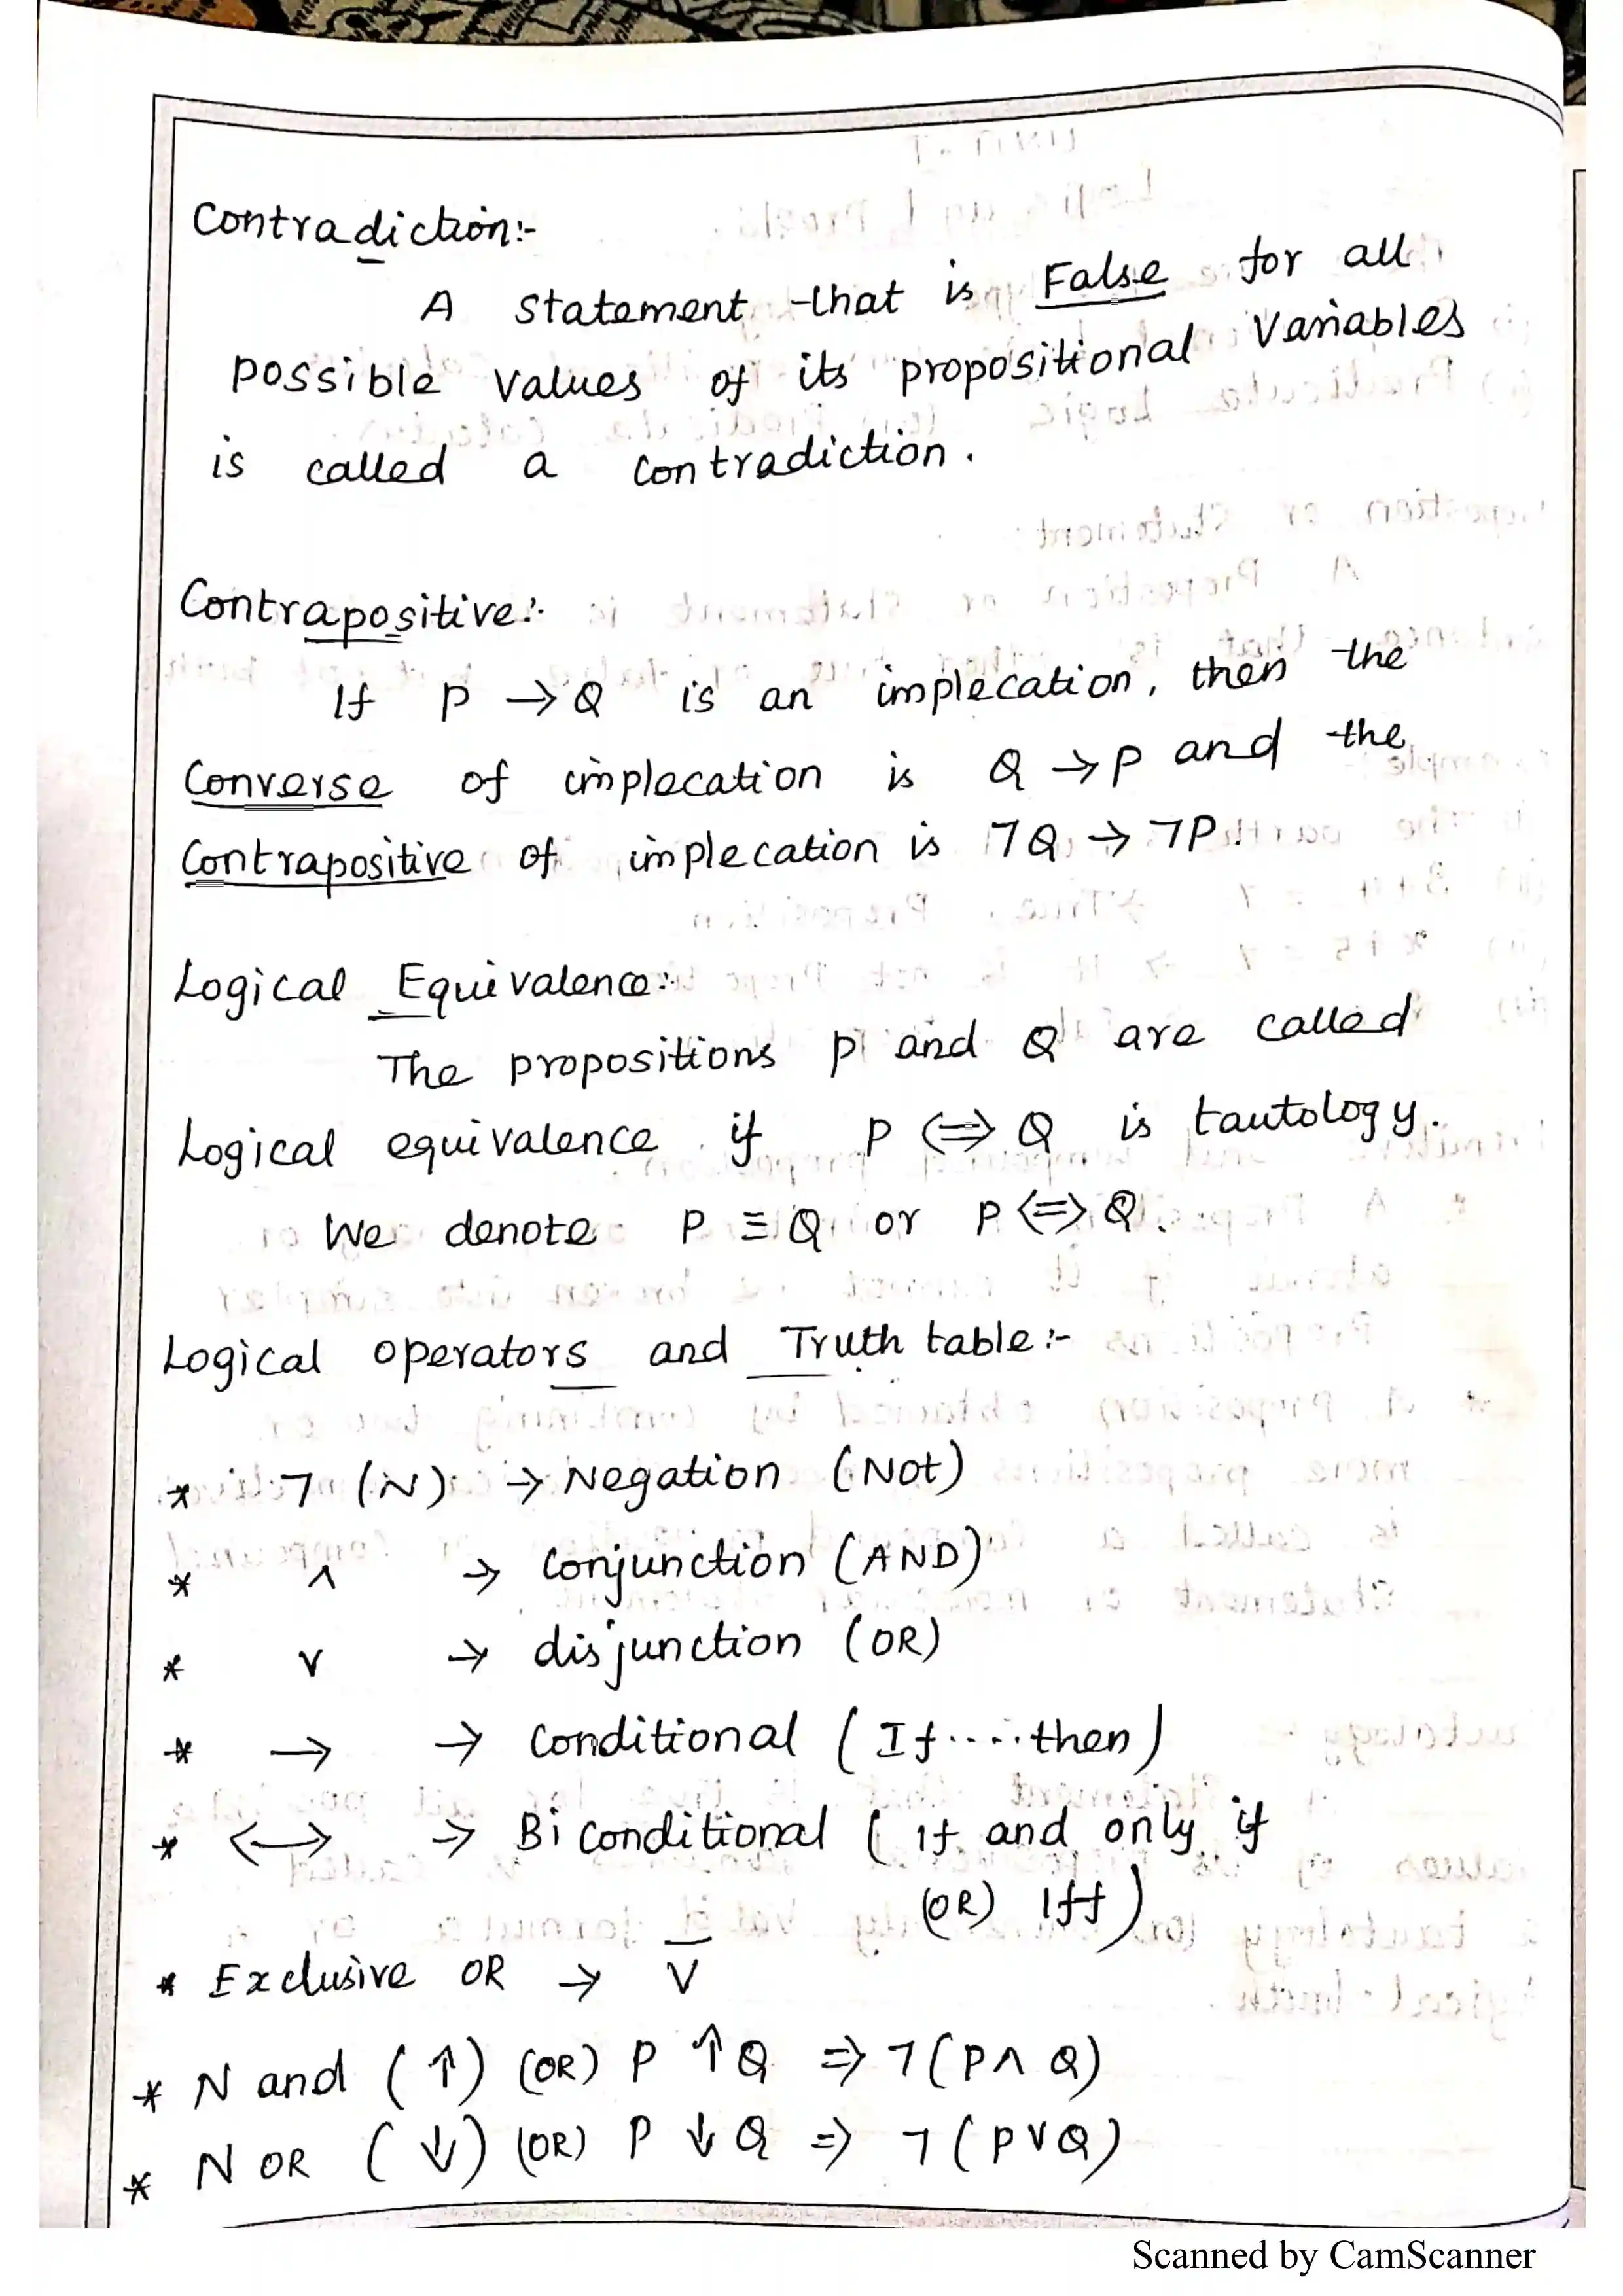 Contradiction:-
A statement that is False for all
possible values of its propositional variables
is called a contradiction.
Contrapositive:-
If P → Q is an implecation, then the
Converse of implecation is Q → P and the
Contrapositive of implecation is ¬Q → ¬P.
Logical Equivalence:-
The propositions P and Q are called
Logical equivalence if P ⇔ Q is tautology.
We denote P ≡ Q or P ⇔ Q.
Logical operators and Truth table:-
* ¬ (N) → Negation (Not)
* ∧ → Conjunction (AND)
* ∨ → disjunction (OR)
* → → Conditional (If....then)
* ↔ → Bi conditional ( If and only if
(OR) Iff)
* Exclusive OR → ⊽
* N and (↑) (OR) P ↑ Q ⇒ ¬(P ∧ Q)
* N OR (↓) (OR) P ↓ Q ⇒ ¬(P ∨ Q)
Scanned by CamScanner